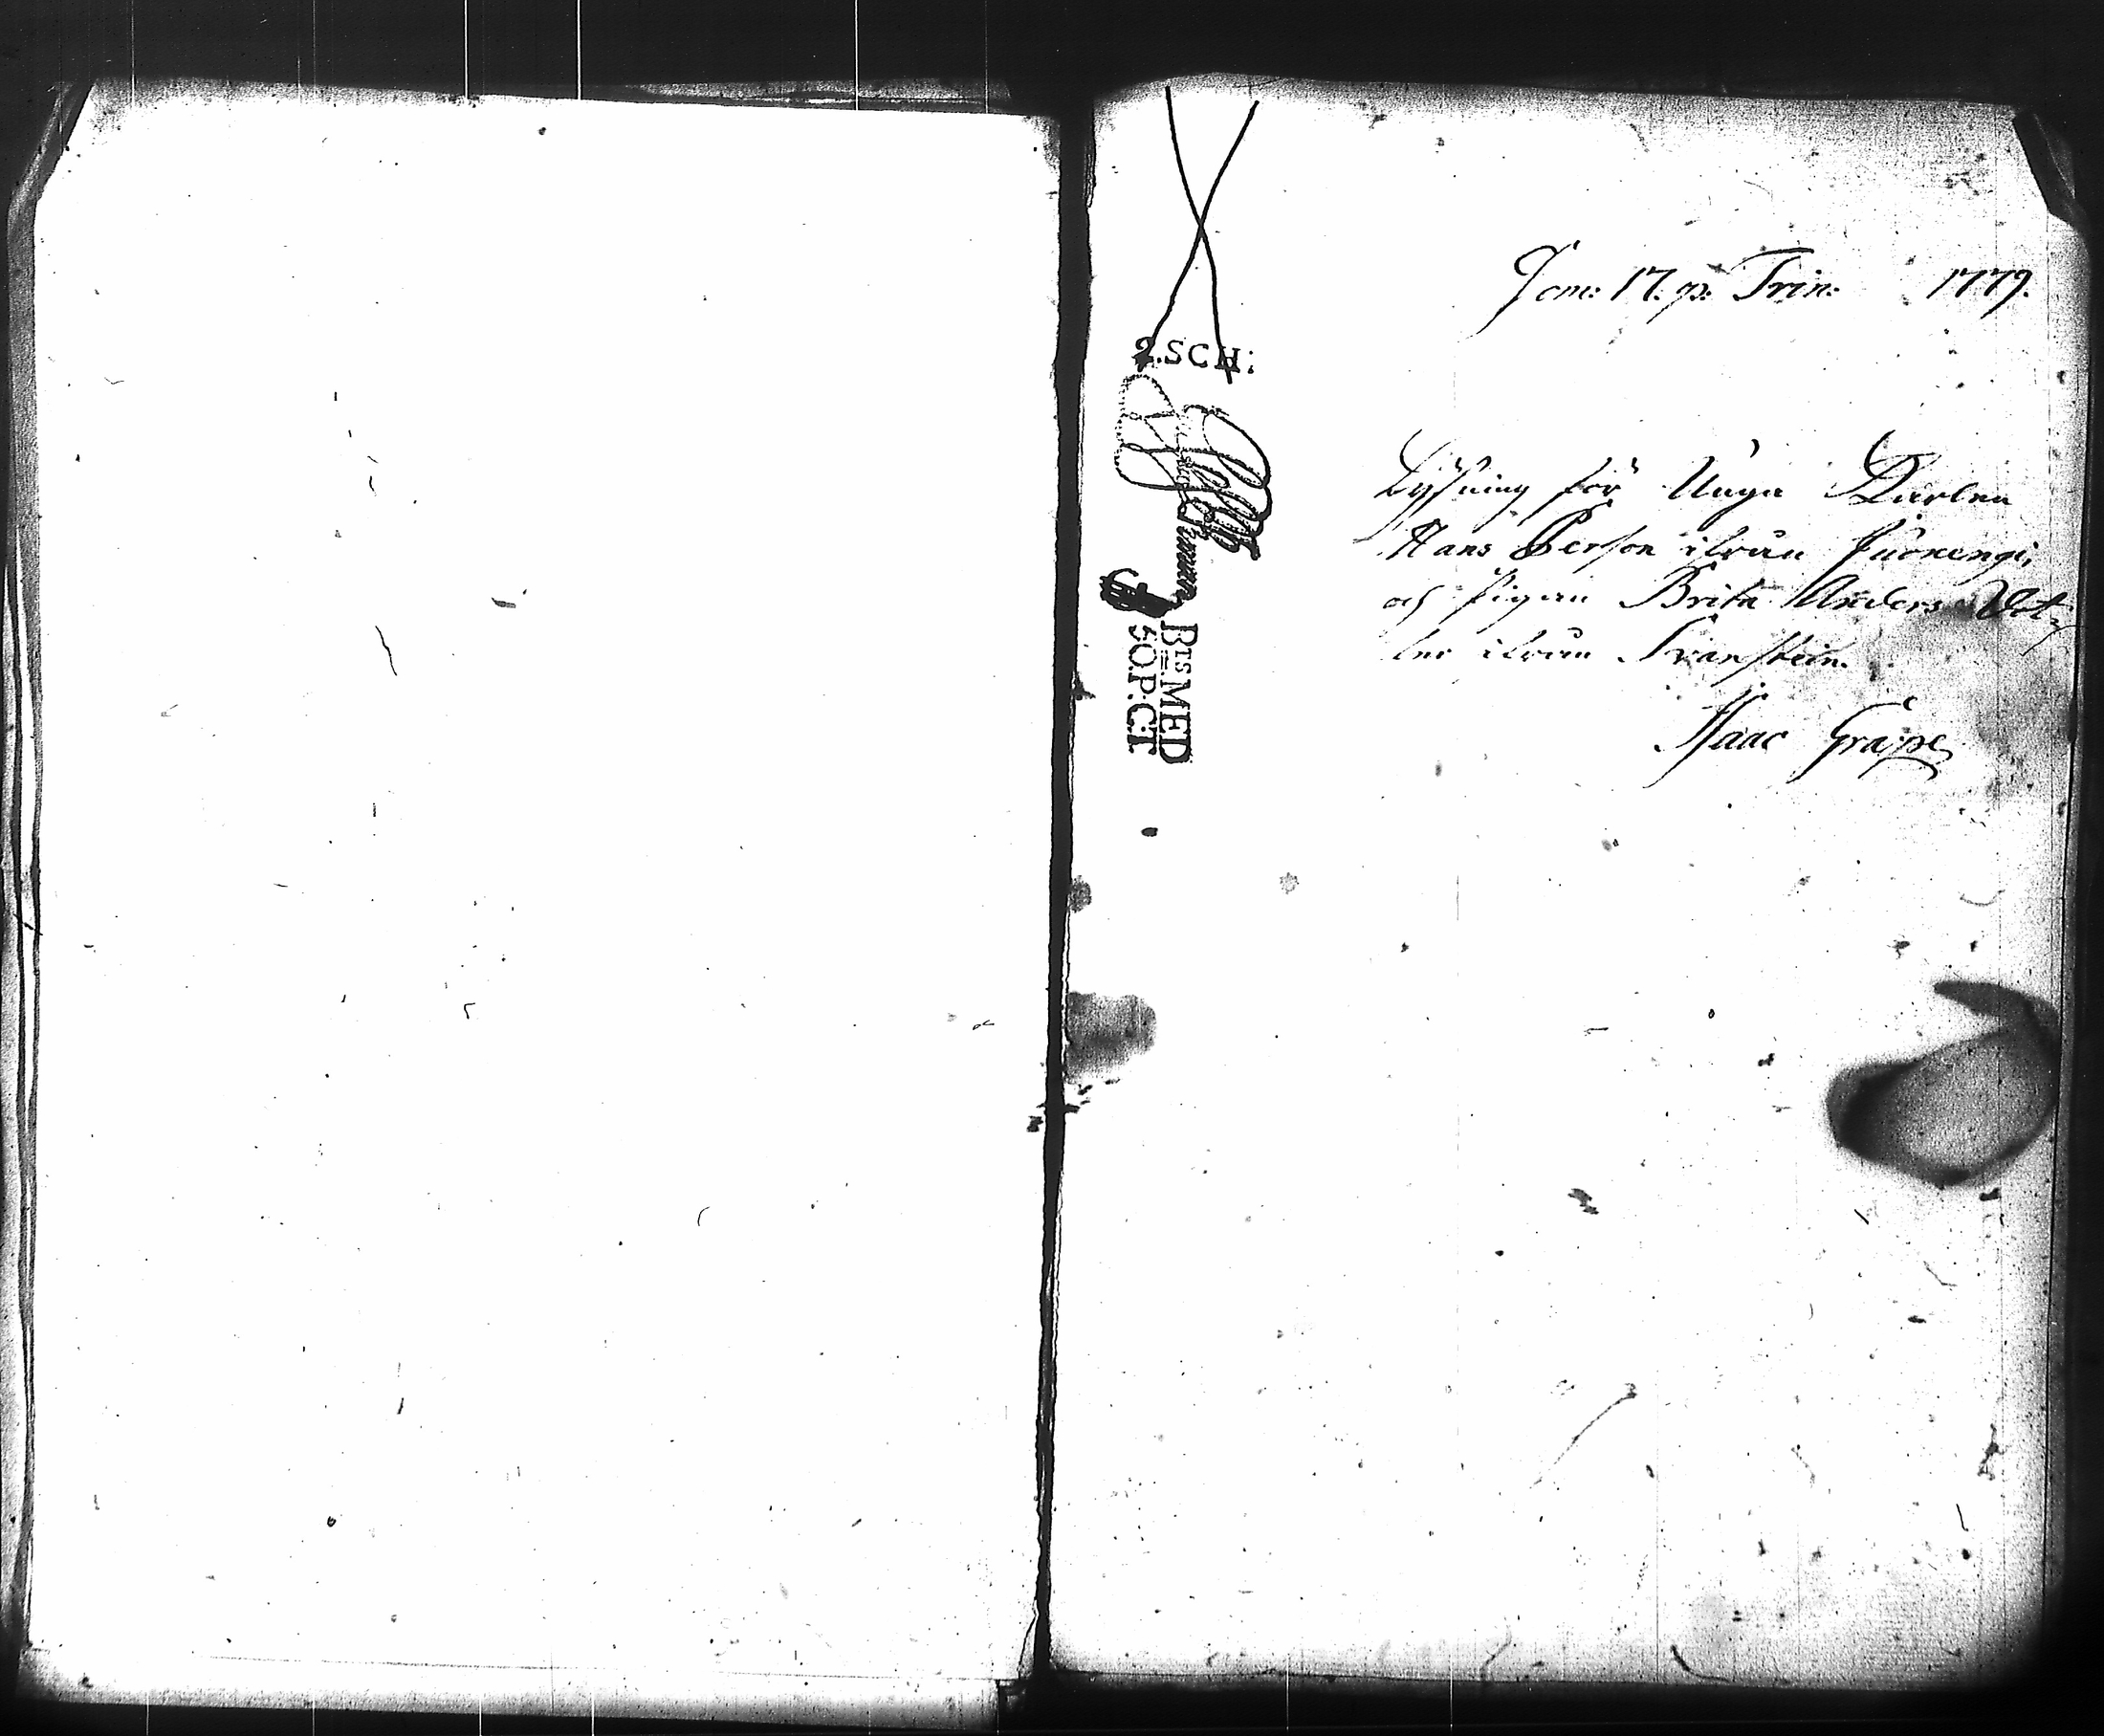 Dom: 17. p. Trin: 1779.
2.SCH:
BTS MED
50.P:C:T
Lysning för Unga Karlen
Hans Person ifrån Juoxengi,
och Pigan Brita Anders
ifrån Svanstein.
Isaac Grape